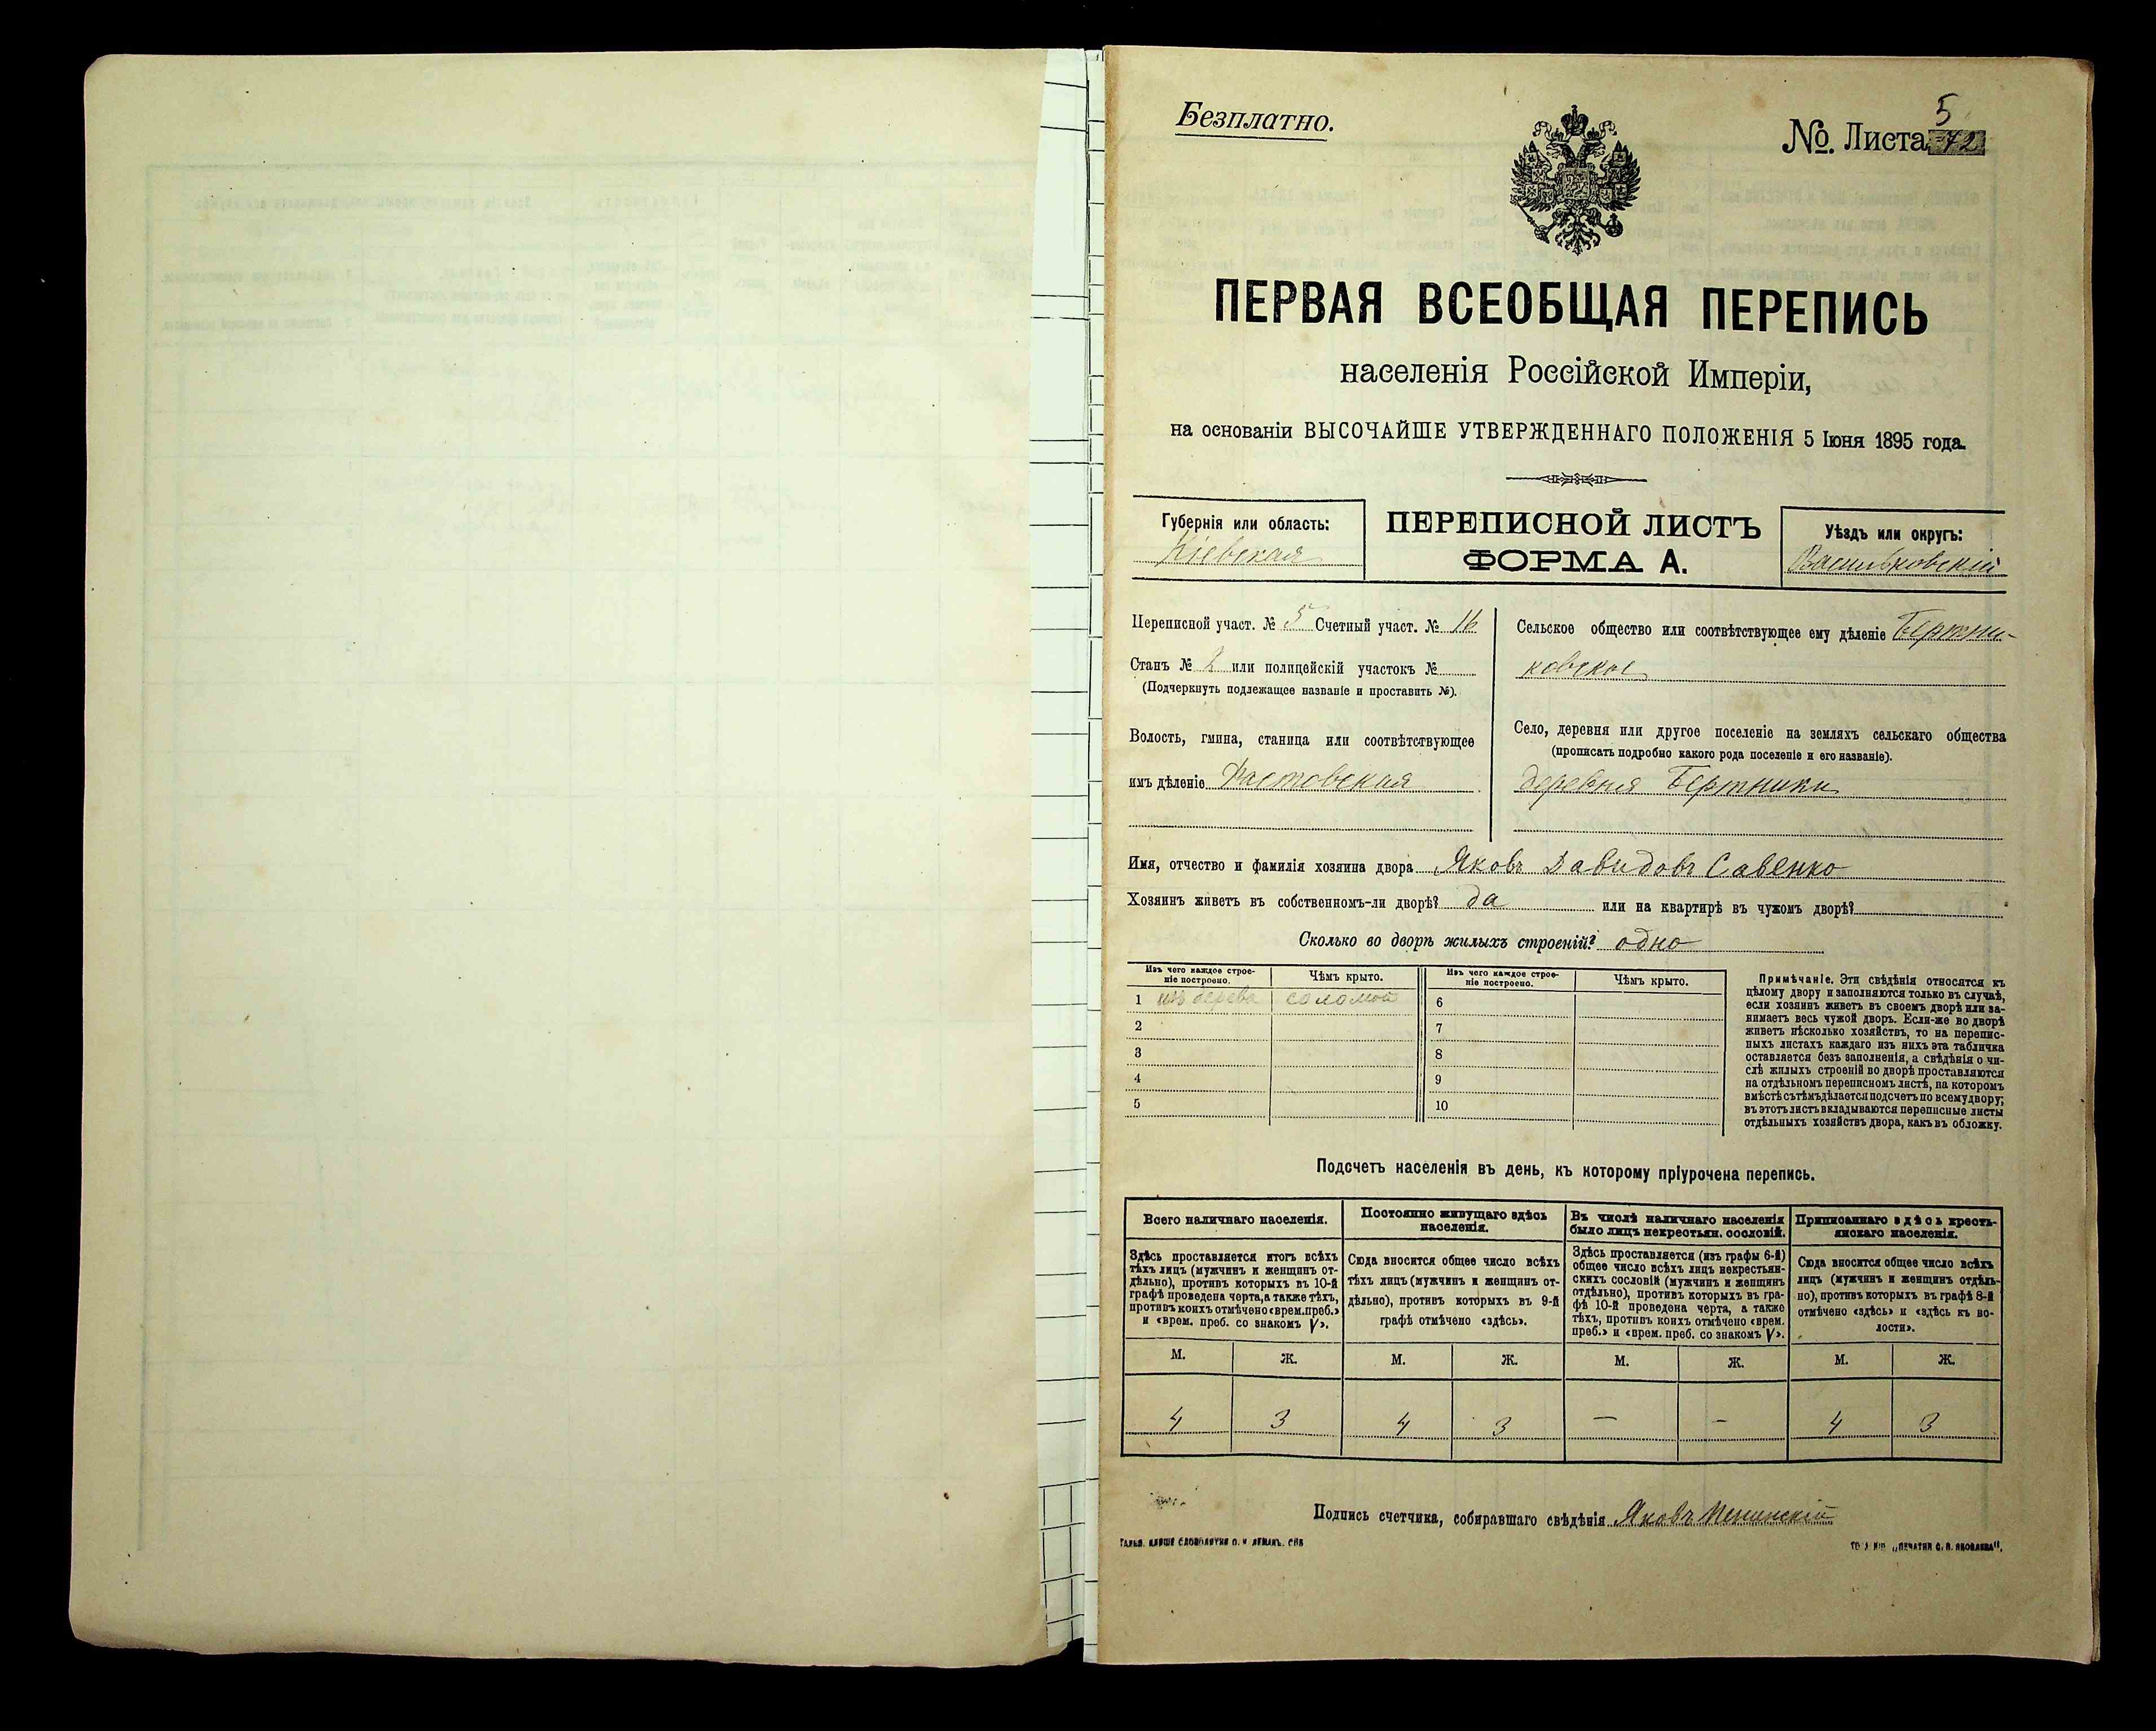 Безплатно.
№. Листа 72
5
ПЕРВАЯ ВСЕОБЩАЯ ПЕРЕПИСЬ
населенія Россійской Имперіи,
на основаніи ВЫСОЧАЙШЕ УТВЕРЖДЕННАГО ПОЛОЖЕНІЯ 5 Іюня 1895 года.
Губернія или область:
Кіевская
ПЕРЕПИСНОЙ ЛИСТЪ
ФОРМА А.
Уѣздъ или округъ:
Васильковскій
Переписной участ. № 5 Счетный участ. № 16
Станъ № 2 или полицейскій участокъ №
(Подчеркнуть подлежащее названіе и проставить №).
Волость, гмина, станица или соотвѣтствующее
имъ дѣленіе Хвастовская
Сельское общество или соотвѣтствующее ему дѣленіе Бертни-
ковское
Село, деревня или другое поселеніе на земляхъ сельскаго общества
(прописать подробно какого рода поселеніе и его названіе).
деревня Бертники
Имя, отчество и фамилія хозяина двора Яковъ Давидовъ Савенко
Хозяинъ живетъ въ собственномъ-ли дворѣ? да или на квартирѣ въ чужомъ дворѣ?
Сколько во дворѣ жилыхъ строеній? одно
Изъ чего каждое строе-
ніе построено.
Чѣмъ крыто.
Изъ чего каждое строе-
ніе построено.
Чѣмъ крыто.
1 изъ дерева соломой 6
2 7
3 8
4 9
5 10
Примѣчаніе. Эти свѣдѣнія относятся къ
цѣлому двору и заполняются только въ случаѣ,
если хозяинъ живетъ въ своемъ дворѣ или за-
нимаетъ весь чужой дворъ. Если-же во дворѣ
живетъ нѣсколько хозяйствъ, то на перепис-
ныхъ листахъ каждаго изъ нихъ эта табличка
оставляется безъ заполненія, а свѣдѣнія о чи-
слѣ жилыхъ строеній во дворѣ проставляются
на отдѣльномъ переписномъ листѣ, на которомъ
вмѣстѣ съ тѣмъ дѣлается подсчетъ по всему двору;
въ этотъ листъ вкладываются переписные листы
отдѣльныхъ хозяйствъ двора, какъ въ обложку.
Подсчетъ населенія въ день, къ которому пріурочена перепись.
Всего наличнаго населенія.
Здѣсь проставляется итогъ всѣхъ
тѣхъ лицъ (мужчинъ и женщинъ от-
дѣльно), противъ которыхъ въ 10-й
графѣ проведена черта, а также тѣхъ,
противъ коихъ отмѣчено «врем. преб.»
и «врем. преб. со знакомъ V».
Постоянно живущаго здѣсь
населенія.
Сюда вносится общее число всѣхъ
тѣхъ лицъ (мужчинъ и женщинъ от-
дѣльно), противъ которыхъ въ 9-й
графѣ отмѣчено «здѣсь».
Въ числѣ наличнаго населенія
было лицъ некрестьян. сословій.
Здѣсь проставляется (изъ графы 6-й)
общее число всѣхъ лицъ некрестьян-
скихъ сословій (мужчинъ и женщинъ
отдѣльно), противъ которыхъ въ гра-
фѣ 10-й проведена черта, а также
тѣхъ, противъ коихъ отмѣчено «врем.
преб.» и «врем. преб. со знакомъ V».
Приписаннаго здѣсь кресть-
янскаго населенія.
Сюда вносится общее число всѣхъ
лицъ (мужчинъ и женщинъ отдѣль-
но), противъ которыхъ въ графѣ 8-й
отмѣчено «здѣсь» и «здѣсь къ во-
лости».
М. Ж. М. Ж. М. Ж. М. Ж.
4 3 4 3 — — 4 3
Подпись счетчика, собиравшаго свѣдѣнія Яковъ
СЛОВОЛИТНИ О. И. ЛЕМАНЪ. СПБ
„ПЕЧАТНИ С. П. ЯКОВЛЕВА".